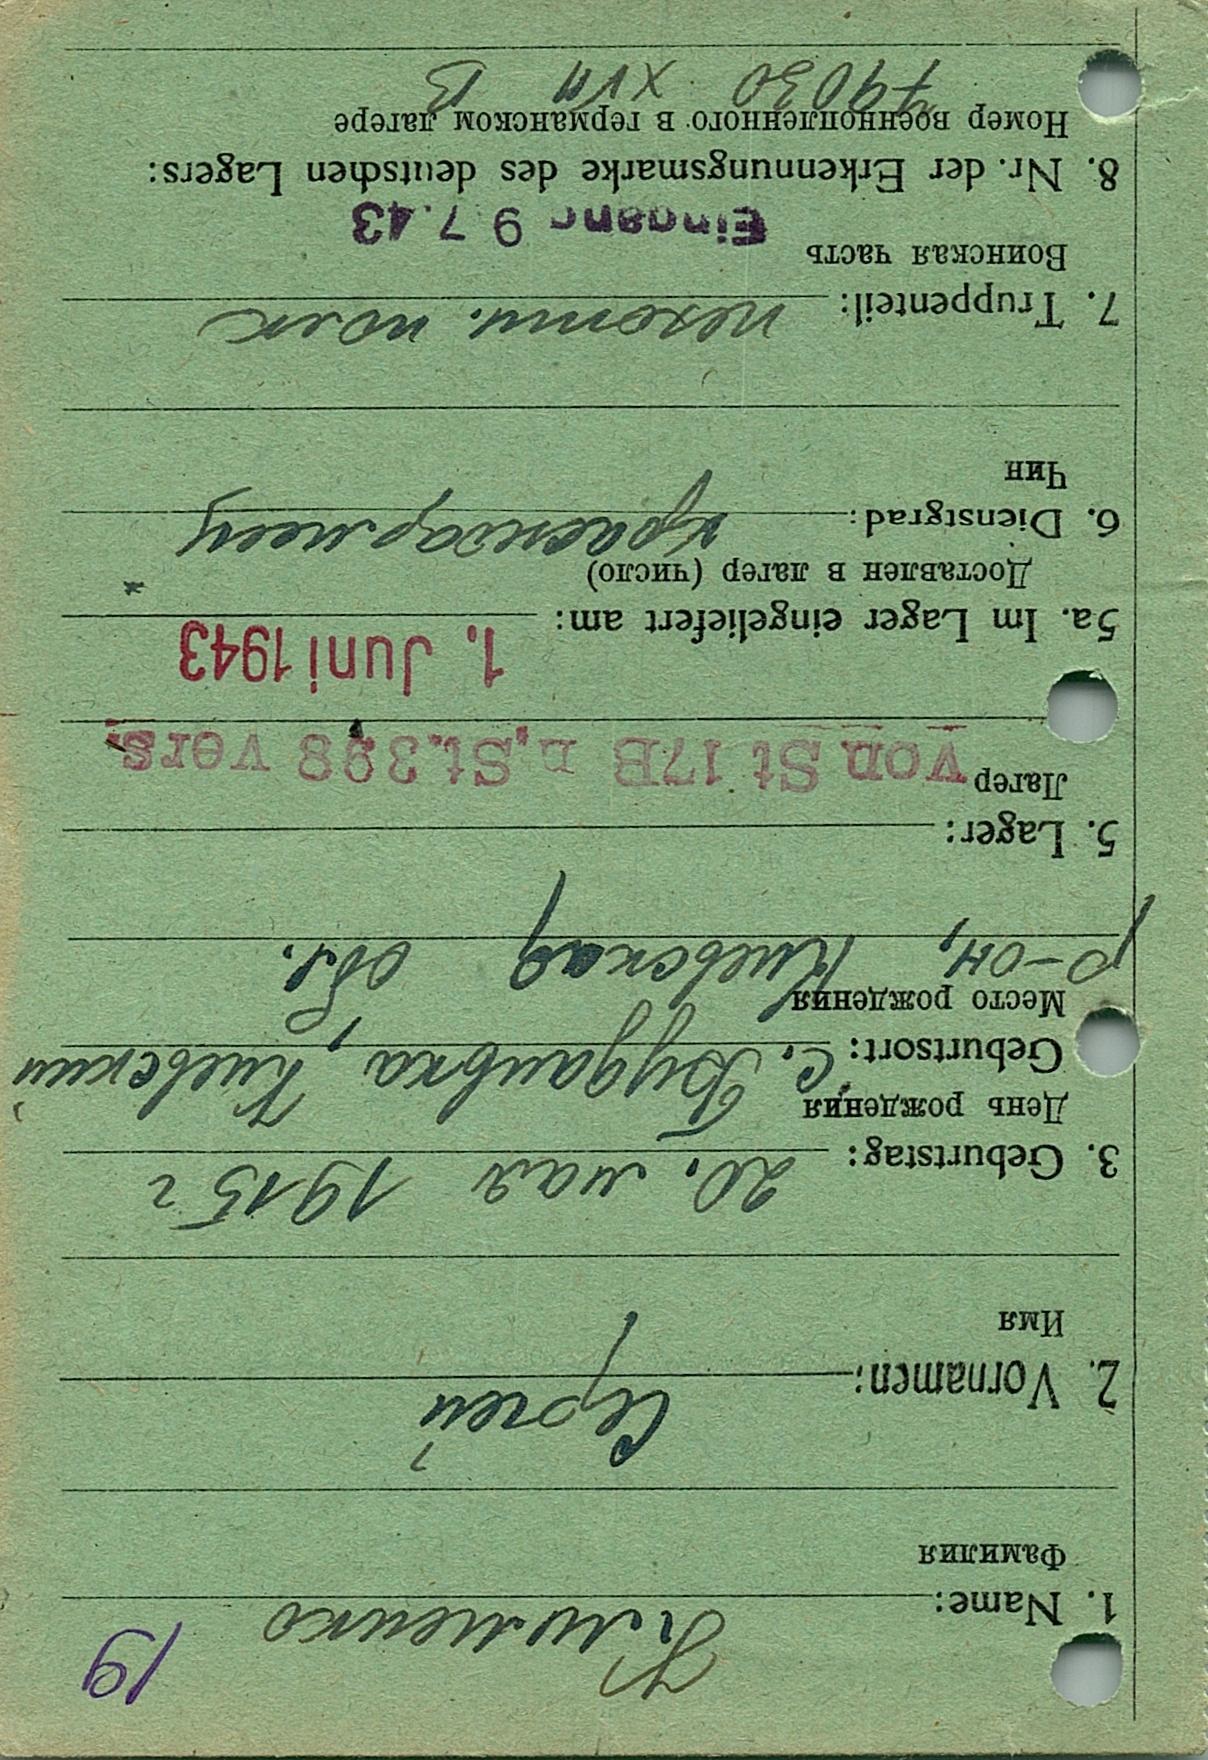 19
1. Name: Клименко
Фамилия
2. Vornamen: Сергей
Имя
3. Geburtstag: 20. мая 1915 г
День рождения
Geburtsort: с. Будаивка, Киевский
Место рождения
р-он, Киевская обл.
5. Lager:
Лагер
von St 17B n. St. 398 vers.
1. Juni 1943
5a. Im Lager eingeliefert am:
Доставлен в лагер (число)
6. Dienstgrad: красноармеец
Чин
7. Truppenteil: пехотн. полк
Воинская часть
Eingang 9 7.43
8. Nr. der Erkennungsmarke des deutschen Lagers:
Номер военнопленного в германском лагере
79030 XVII B